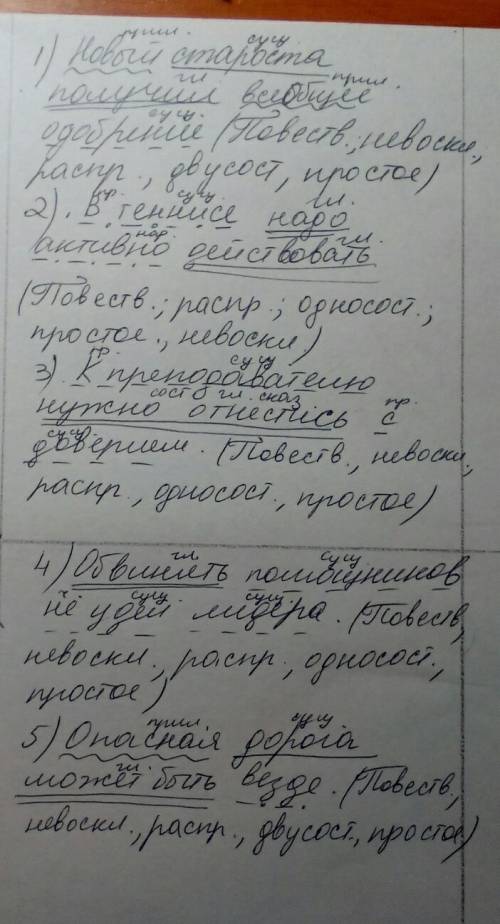 прил. сущ
1) Новый староста
гл прил.
получил всеобщее
сущ
одобрение (Повеств.; невоскл.,
распр., двусост, простое)
пр. сущ гл.
2). В теннисе надо
нар. гл.
активно действовать
(Повеств.; распр.; односост.;
простое., невоскл)
пр. сущ
3). К преподавателю
сост гл. сказ пр.
нужно отнестись с
сущ.
доверием. (Повеств., невоскл,
распр., односост., простое)
гл сущ
4) Обвинять помощников
сущ сущ
не удел лидера. (Повеств,
невоскл., распр., односост.,
простое)
прил сущ
5) Опасная дорога
гл.
может быть везде. (Повеств.,
невоскл., распр., двусост., простое)